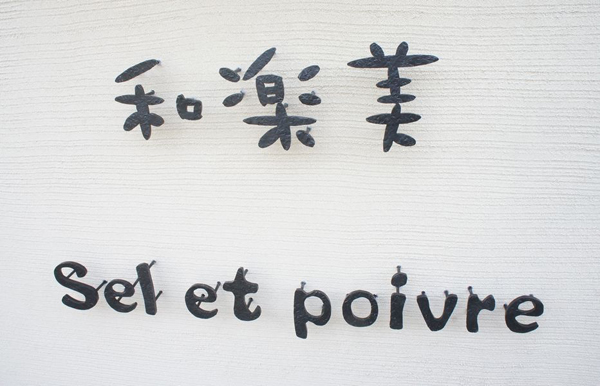 和楽美
Sel et poivre